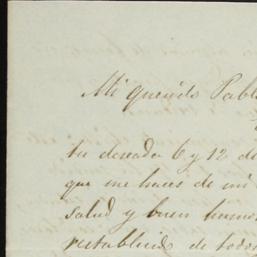 Mi querido Pabl
tu deseada 6 y 12 de
que me haces de mi
salud y buen humo
restablecido de todos